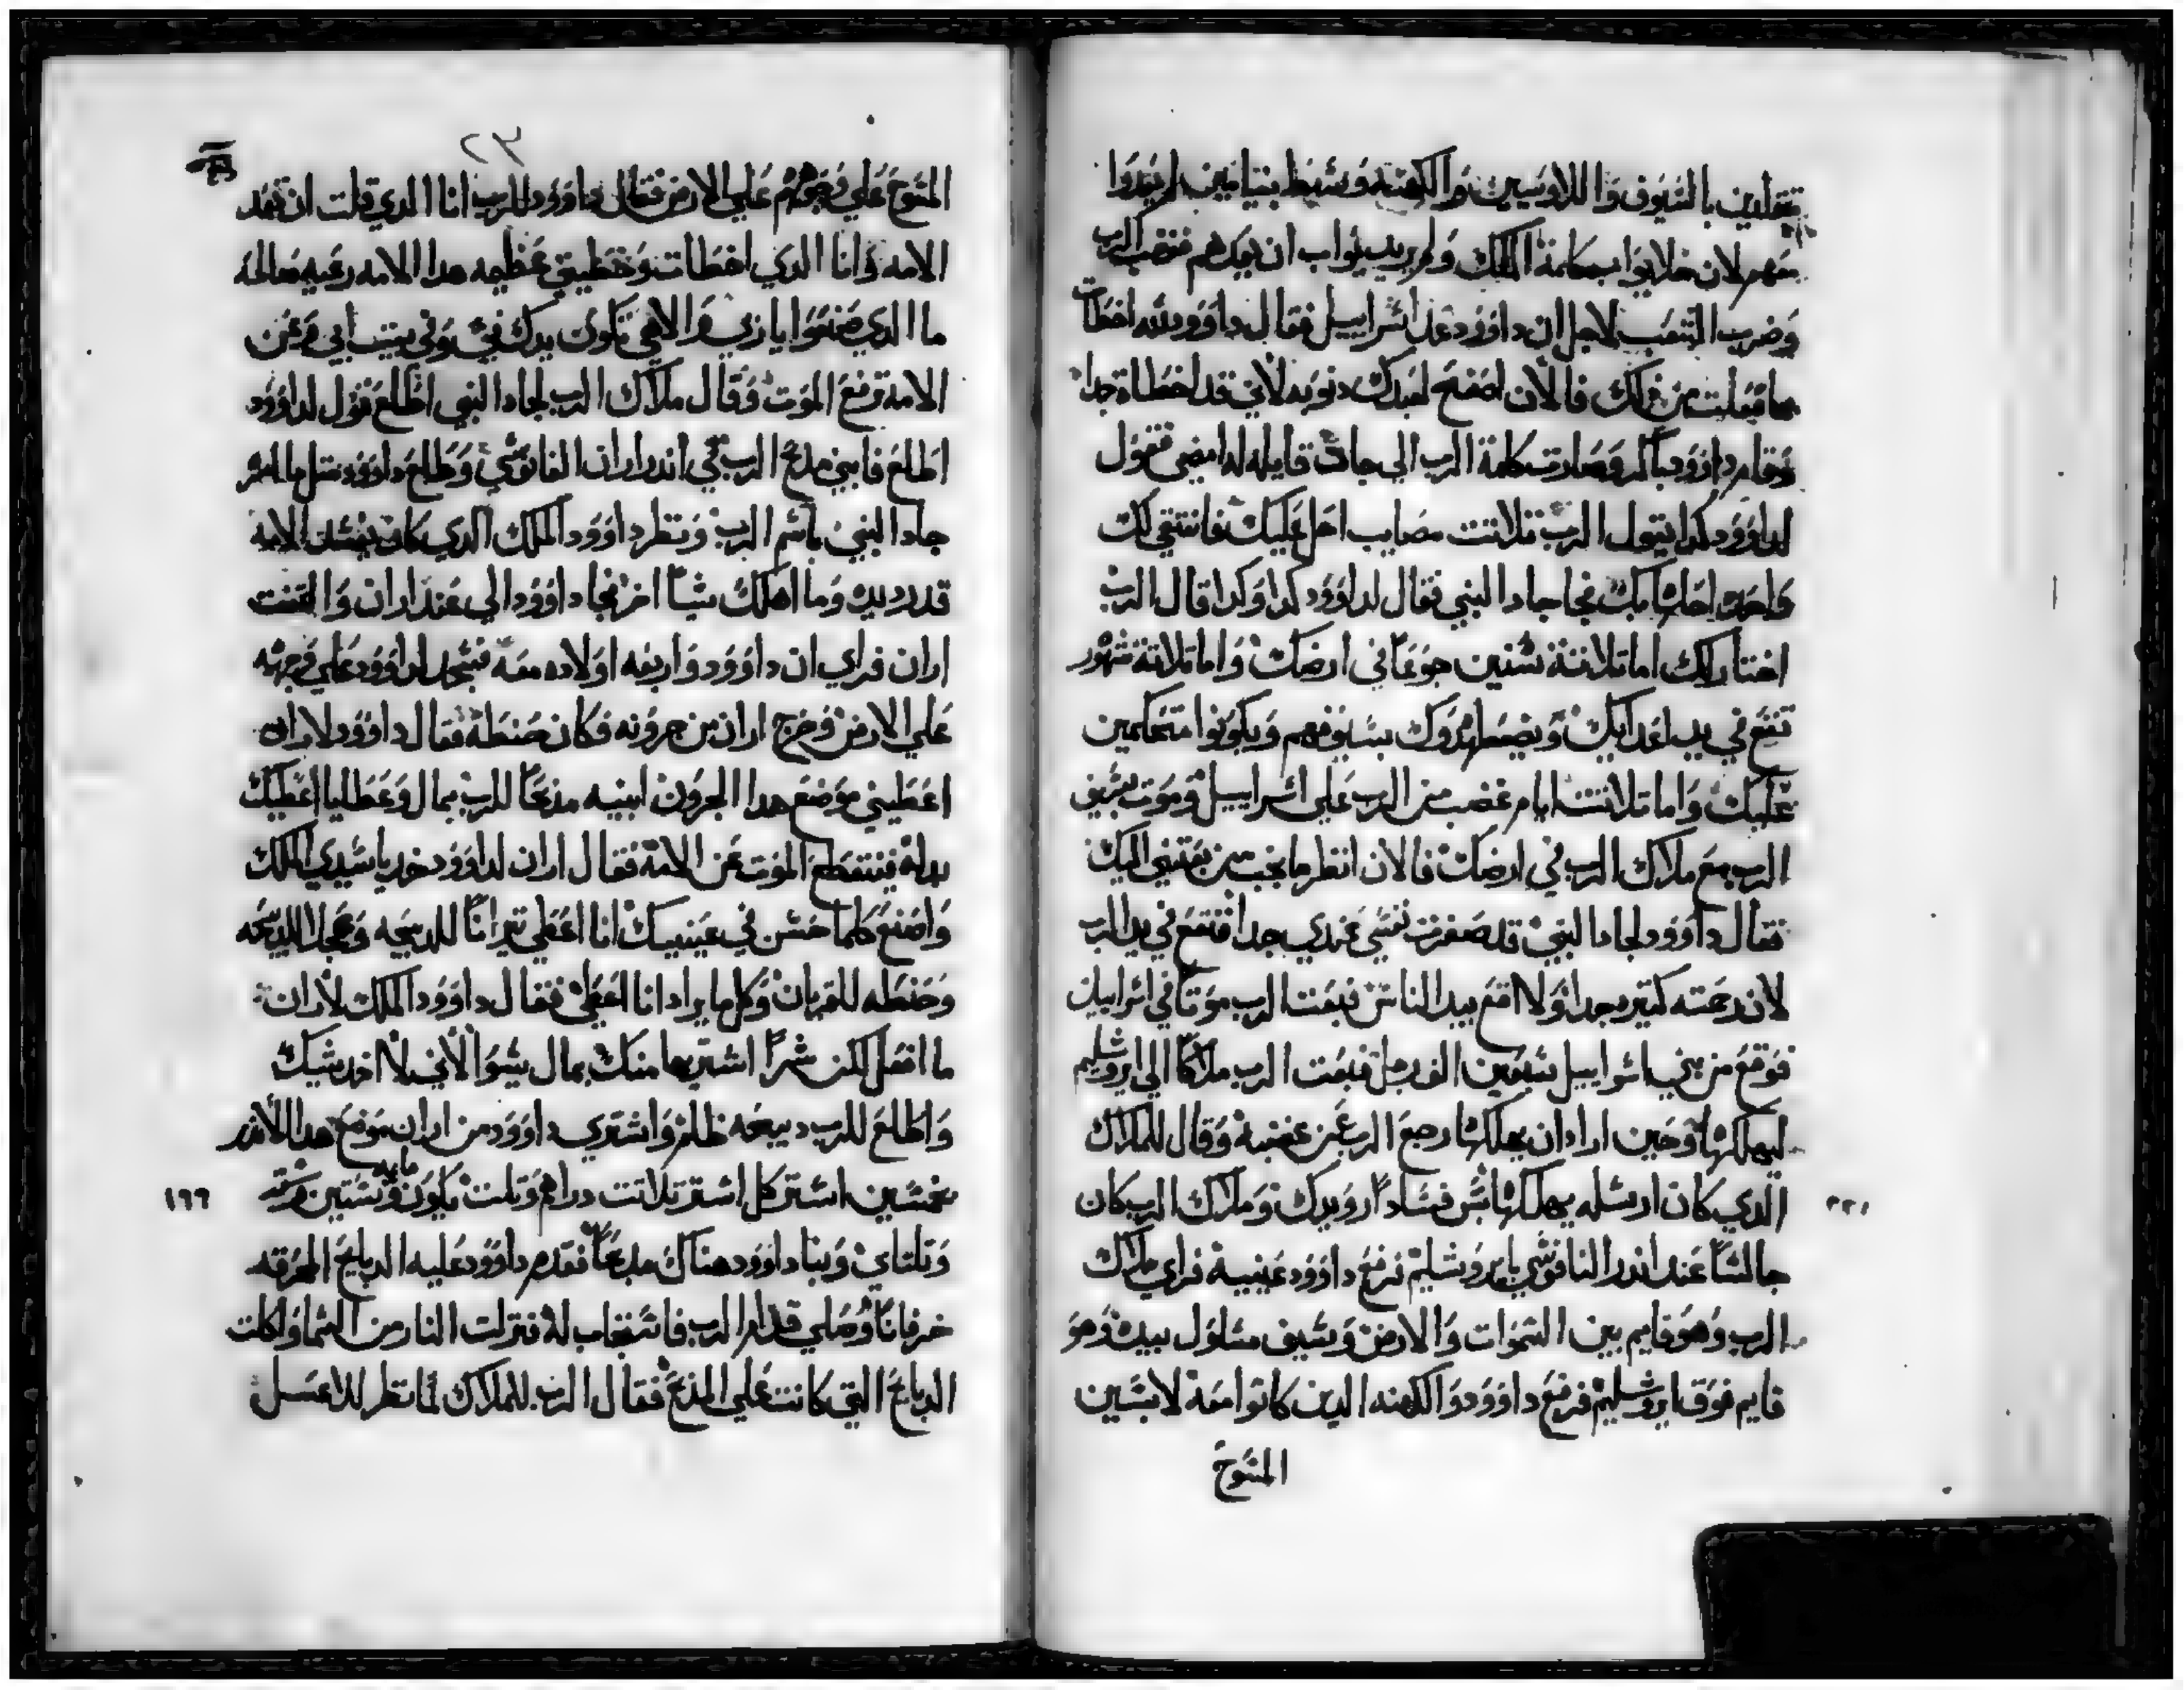 متقلدين بالسيوف واللاويين والكهنة وسبط بنيامين لم يعدوا
معهم لان خلا يواب بكلمة الملك ولم يريد يواب ان يعدهم فغضب الرب
وضرب الشعب لاجل ان داوود عد اسراييل فقال داوود لله اخطات
بما فعلت من ذلك فالان اصفح لعبدك دنوبه لاني قد اخطات جدا
وقام داوود باكر وصارت كلمة الرب الي جاد قايله له امضي فتقول
لداوود كدا يقول الرب تلاتت مصايب احل عليك فانتقي لك
واحده احلها بك فجا جاد النبي فقال لداوود كدا وكدا قال الرب
اختار لك اما تلاتة سنين جوعا في ارضك واما تلاتة شهور
تقع في يد اعدايك ويضطهدوك بسيوفهم ويكونوا متحكمين
عليك واما تلاتت ايام غضب من الرب علي اسراييل وموت بسيف
الرب مع ملاك الرب في ارضك فالان انظر ما نجيب من بعتني اليك
فقال داوود لجاد النبي قد صغرت نفسي عندي جدا فنقع في يد الرب
لان رحمته كتيره جدا ولا اقع بيد الناس فبعت الرب موتا في اسراييل
فوقع من بني اسراييل سبعين الف رجل فبعت الرب ملاكا الي ايروشليم
ليهلكها وحين اراد ان يهلكها رجع الرب عن غضبه وقال للملاك
الدي كان ارسله يهلكها بس فسادا رويدك وملاك الرب كان
جالسا عند اندر النافوسي بايروشليم فرفع داوود عينيه فراي ملاك
الرب وهو قايم بين السموات والارض وسيف مسلول بيده وهو
قايم فوق ايروشليم فرفع داوود والكهنه الدين كانوا معه لابسين
المسوح
٢٣
المسوح علي وجوههم علي الارض فقال داوود للرب انا الدي قلت ان تعد
الامه وانا الدي اخطات وخطيتي عظيمه هدا الامه رعيه صالحه
ما الدي صنعوا يا ربي والاهي تكون يدك في وفي بيت ابي وعن
الامة ترفع الموت وقال ملاك الرب لجاد النبي اطلع قول لداوود
اطلع فابني مدبح الرب في اندر اران النافوسي وطلع داوود متل ما امر
جاد النبي باسم الرب ونظر داوود الملك الدي كان يفسد الامة
قد رد يده وما اهلك شيا اخر فجا داوود الي عند اران والتفت
اران فراي ان داوود واربعه اولاده معه فسجد لداوود علي وجهه
علي الارض وخرج اران من جرونه فكان حنطة فقال داوود لاران
اعطيني موضع هدا الجرون ابنيه مدبحا للرب بمال وعطايا اعطيك
بدله فينقطع الموت عن الامة فقال اران لداوود خد يا سيدي الملك
واصنع كلما حسن في عينيك انا اعطي تيرانا للدبيحه وعجلا للدبيحه
وحنطه للقربان وكل ما يراد انا اعطي فقال داوود الملك لاران
ما افعل لكن شرا اشتريها منك بمال سوا لاني لا اخد شيك
واطلع للرب دبيحه ظلم واشتري داوود من اران موضع هدا الاندر
بخمسين استر كل استر تلاتت دراهم وتلت يكون مايه وستين وسته
١٦٦
وتلتاي وبنا داوود هناك مدبحا فقدم داوود عليه الدبايح المحرقه
خرفانا وصلي قدام الرب فاستجاب له فنزلت النار من السما واكلت
الدبايح التي كانت علي المدبح فقال الرب للملاك لما تنظر للاعسل